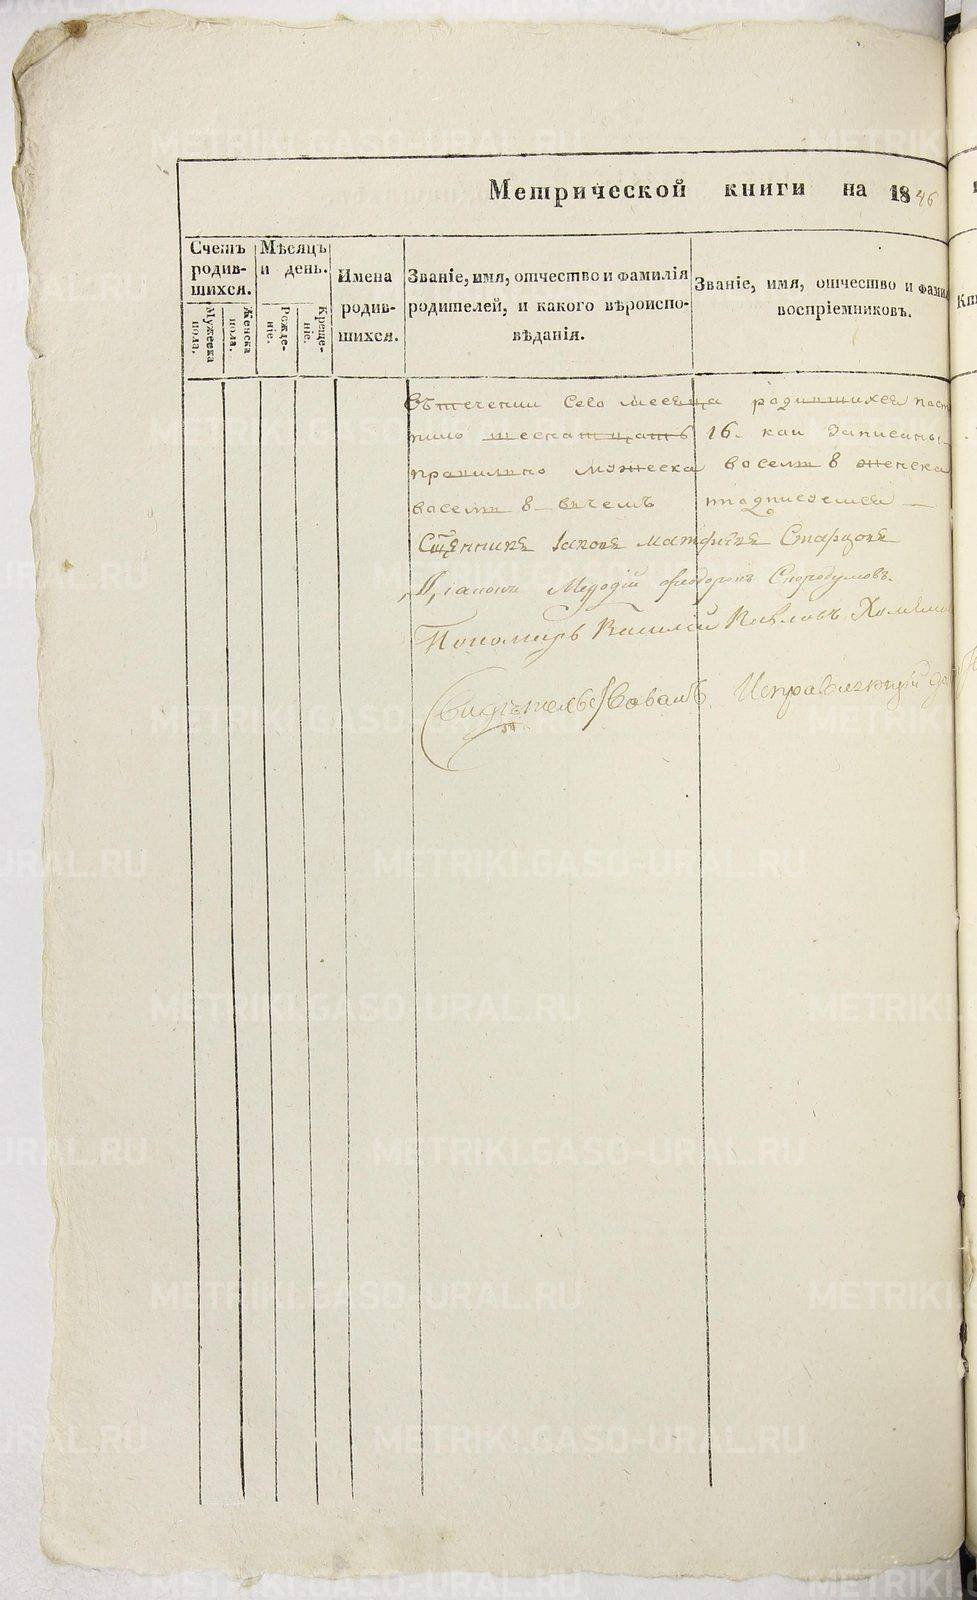 Метрической книги на 1846
Счетъ родив-шихся.
Мужеска пола.
Женска пола.
Мѣсяцъ и день.
Рожде-ніе.
Креще-ніе.
Имена родив-шихся.
Званіе, имя, отчество и фамилія родителей, и какого вѣроиспо-вѣданія.
Званіе, имя, отчество и фами
воспріемниковъ.
Въ течении Сего месеца родившихся
шеснатцать 16. каи записаны
правильно можеска восемь 8 женска
восемь 8 – въчемъ подписуемся –
Сщенникъ Іаковъ Матфѣевъ Старцовъ
Діаконъ Меѳодій Ѳеодоровъ Скородумовъ.
Пономарь Василий Павловъ
Свидѣтельствовалъ Исправляющій
METRIKI.GASO-URAL.RU